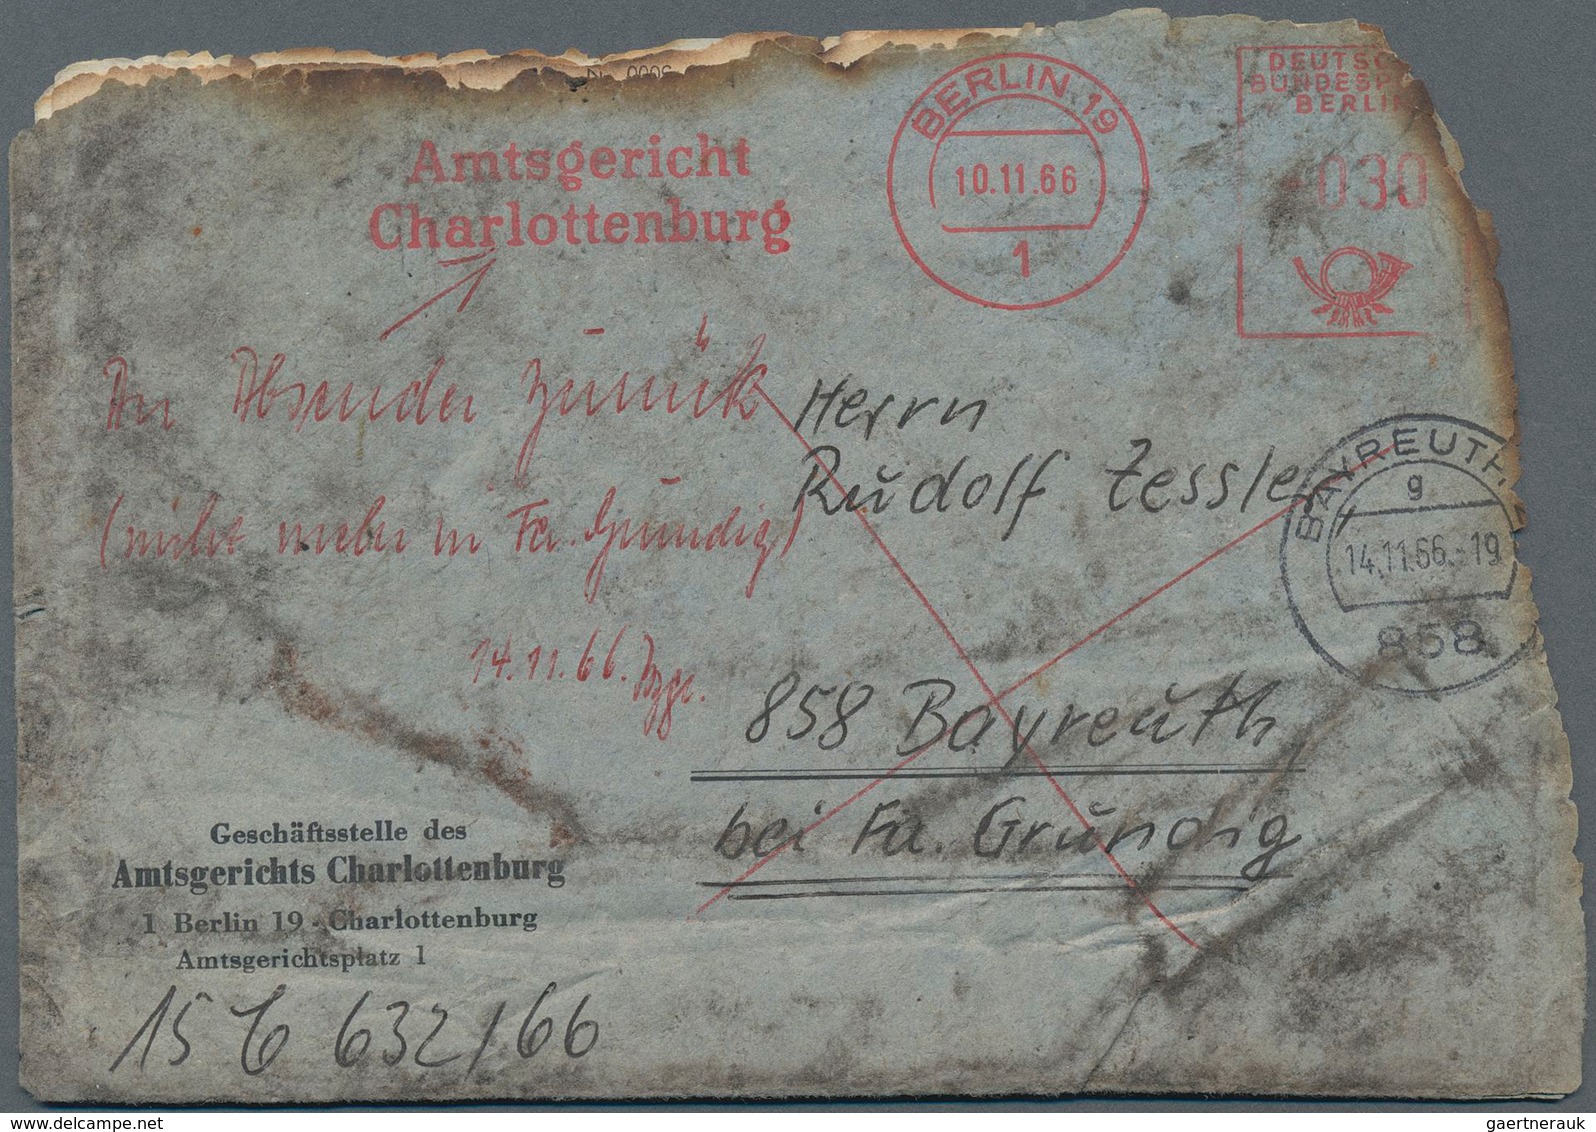 Amtsgericht
Charlottenburg
BERLIN 19
10.11.66
1
DEUTSC
BUNDESP
BERLIN
030
An Absender zurück
(nicht mehr in Fa. Grundig)
14.11.66.
Herrn
Rudolf Zessler
BAYREUTH
g
14.11.66.-19
858
858 Bayreuth
bei Fa. Grundig
Geschäftsstelle des
Amtsgerichts Charlottenburg
1 Berlin 19 - Charlottenburg
Amtsgerichtsplatz 1
15 C 632/66
www.delcampe.net
gaertnerauk